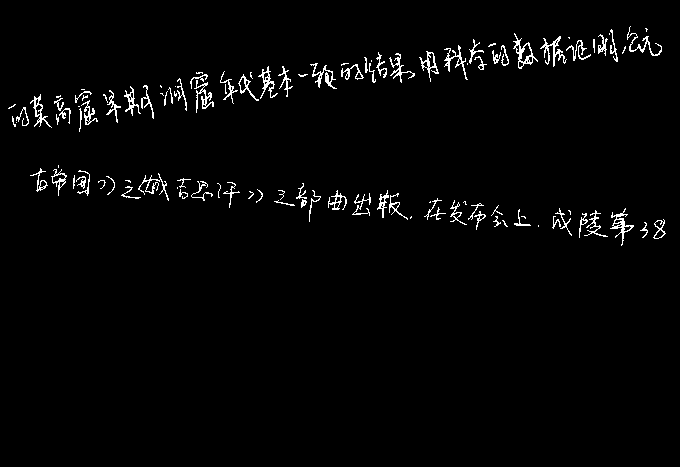 的莫高窟早期洞窟年代基本一致的结果,用科学的数据证明,公元
古帝国》之《成吉思汗》三部曲出版.在发布会上,成陵第38